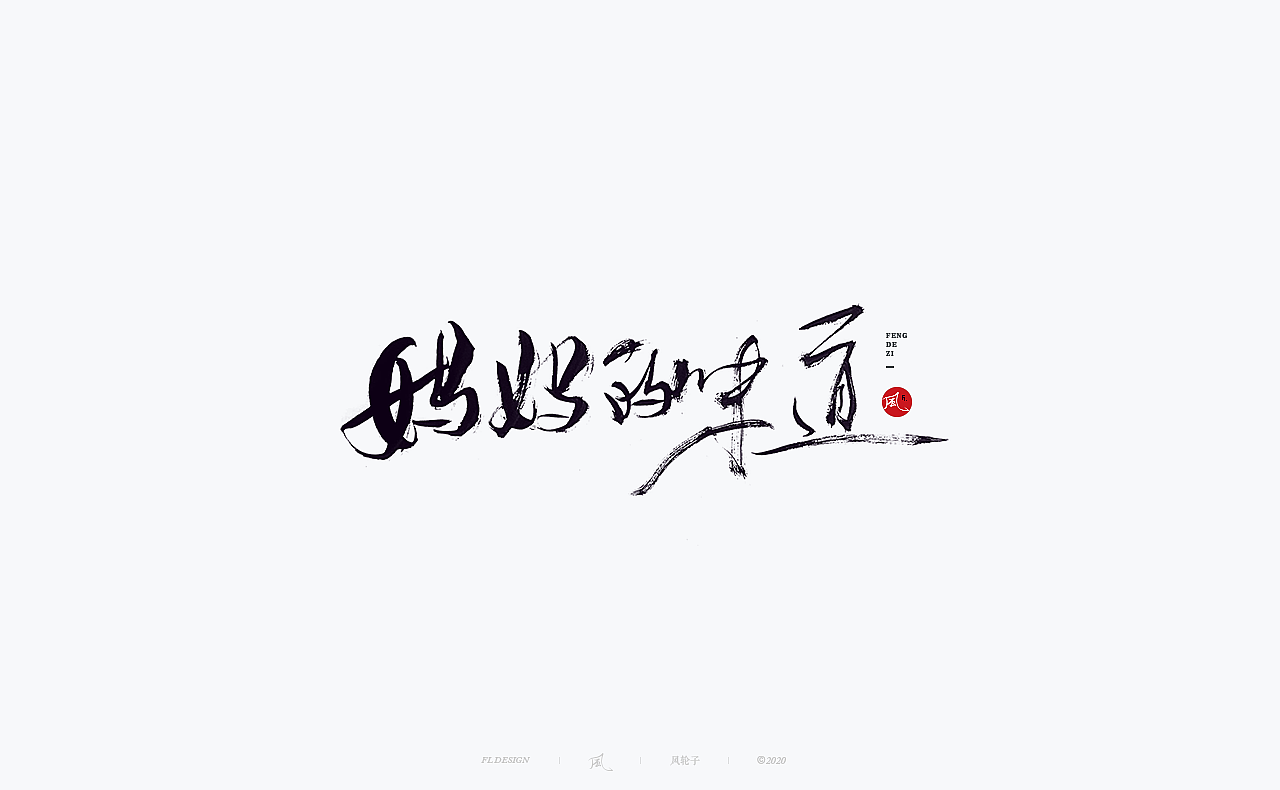 妈妈的味道
FENG
DE
ZI
風
FL.DESIGN 風 风轮子 ©2020